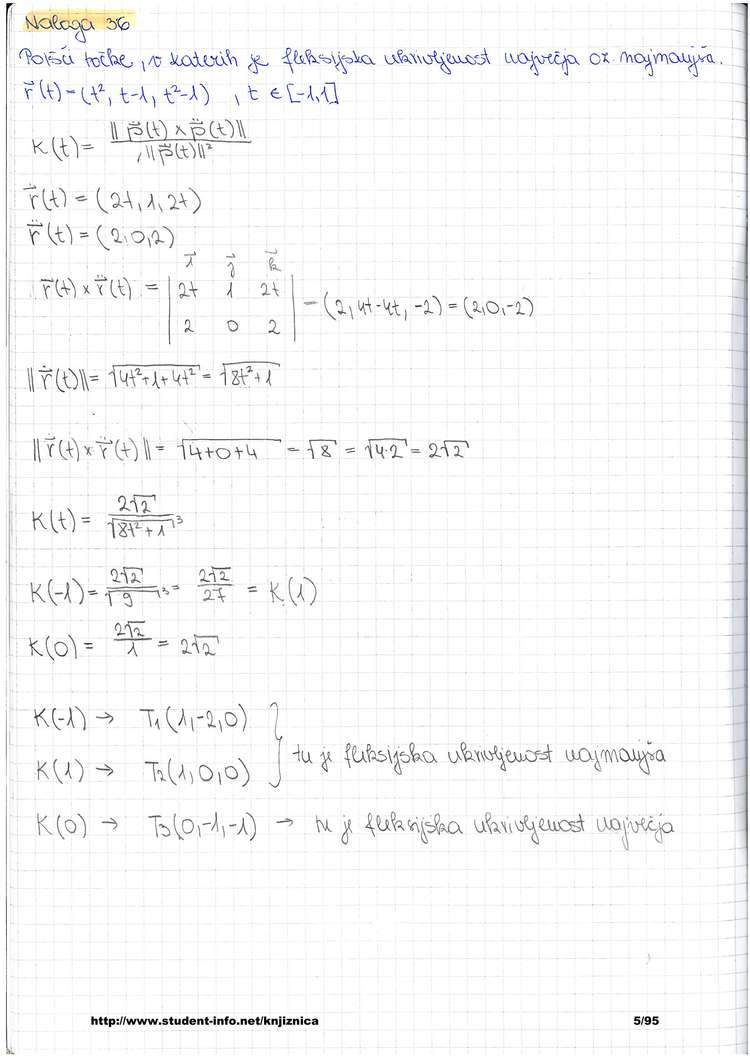 Naloga 36
Poišči točke, v katerih je fleksijska ukrivljenost največja oz. najmanjša.
r⃗(t)=(t², t-1, t²-1) , t ∈ [-1,1]
K(t) = ||ṙ⃗(t) × r̈⃗(t)|| / ||ṙ⃗(t)||³
ṙ⃗(t) = (2t, 1, 2t)
r̈⃗(t) = (2,0,2)
ṙ⃗(t) × r̈⃗(t) = | i⃗ j⃗ k⃗ ; 2t 1 2t ; 2 0 2 | = (2, 4t-4t, -2) = (2,0,-2)
||ṙ⃗(t)|| = √(4t²+1+4t²) = √(8t²+1)
||ṙ⃗(t) × r̈⃗(t)|| = √(4+0+4) = √8 = √(4·2) = 2√2
K(t) = 2√2 / √(8t²+1)³
K(-1) = 2√2 / √9³ = 2√2 / 27 = K(1)
K(0) = 2√2 / 1 = 2√2
K(-1) → T₁(1,-2,0)
K(1) → T₂(1,0,0) } tu je fleksijska ukrivljenost najmanjša
K(0) → T₃(0,-1,-1) → tu je fleksijska ukrivljenost največja
http://www.student-info.net/knjiznica 5/95